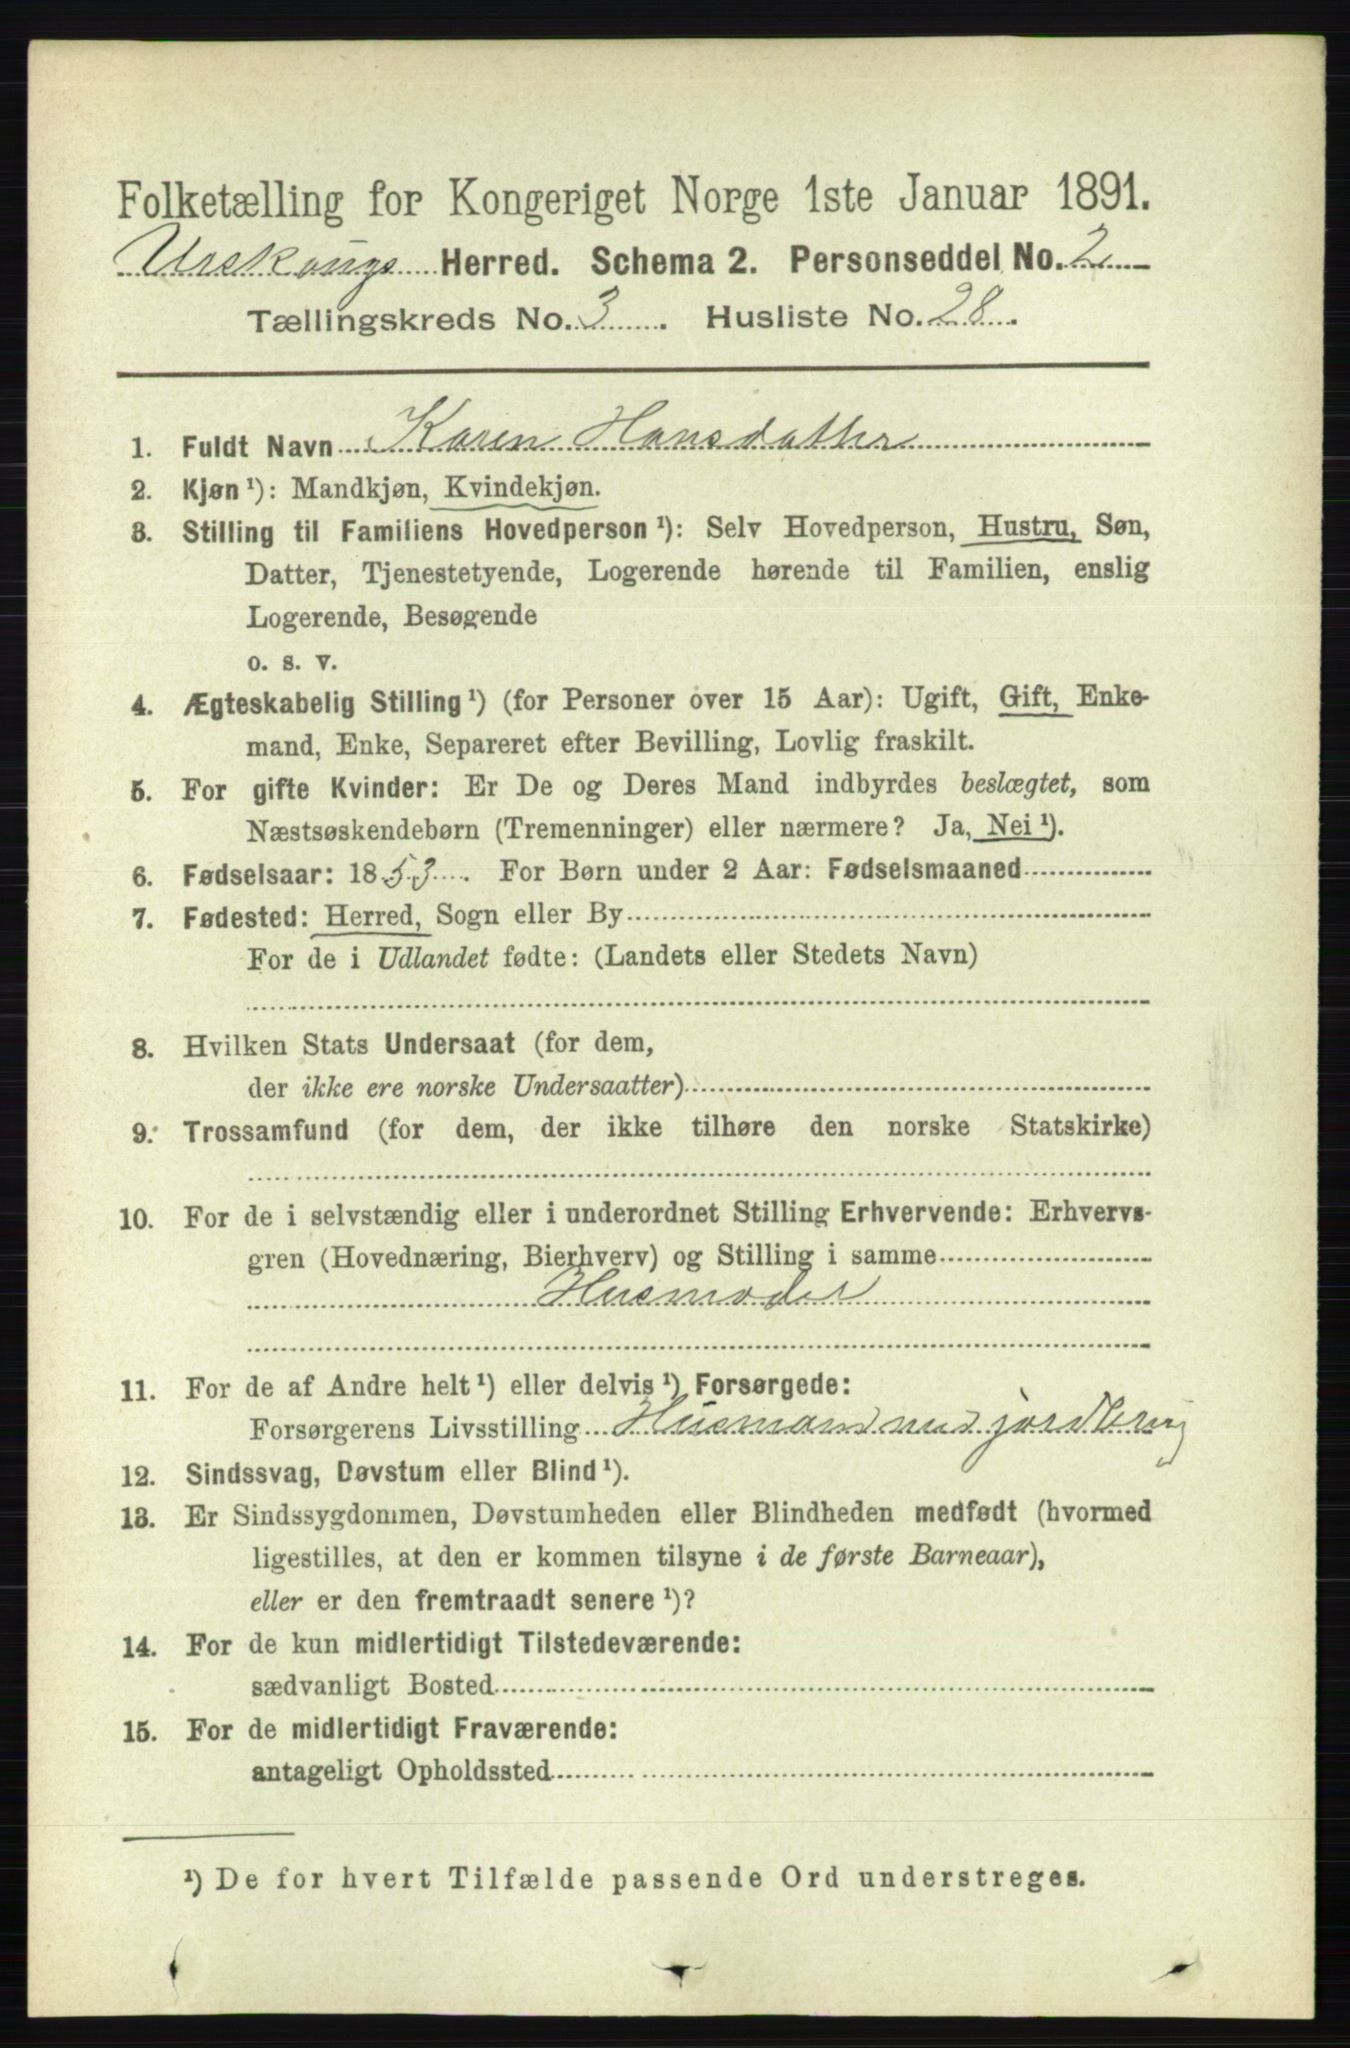 Folketælling for Kongeriget Norge 1ste Januar 1891.
Urskougs Herred. Schema 2. Personseddel No. 2
Tællingskreds No. 3. Husliste No. 28.
1. Fuldt Navn Karen Hansdatter
2. Kjøn ¹): Mandkjøn, Kvindekjøn.
3. Stilling til Familiens Hovedperson ¹): Selv Hovedperson, Hustru, Søn,
Datter, Tjenestetyende, Logerende hørende til Familien, enslig
Logerende, Besøgende
o. s. v.
4. Ægteskabelig Stilling ¹) (for Personer over 15 Aar): Ugift, Gift, Enke-
mand, Enke, Separeret efter Bevilling, Lovlig fraskilt.
5. For gifte Kvinder: Er De og Deres Mand indbyrdes beslægtet, som
Næstsøskendebørn (Tremenninger) eller nærmere? Ja, Nei ¹).
6. Fødselsaar: 1853. For Børn under 2 Aar: Fødselsmaaned
7. Fødested: Herred, Sogn eller By
For de i Udlandet fødte: (Landets eller Stedets Navn)
8. Hvilken Stats Undersaat (for dem,
der ikke ere norske Undersaatter)
9. Trossamfund (for dem, der ikke tilhøre den norske Statskirke)
10. For de i selvstændig eller i underordnet Stilling Erhvervende: Erhvervs-
gren (Hovednæring, Bierhverv) og Stilling i samme
Husmoder
11. For de af Andre helt ¹) eller delvis ¹) Forsørgede:
Forsørgerens Livsstilling Husmand med jordbrug
12. Sindssvag, Døvstum eller Blind ¹).
13. Er Sindssygdommen, Døvstumheden eller Blindheden medfødt (hvormed
ligestilles, at den er kommen tilsyne i de første Barneaar),
eller er den fremtraadt senere ¹)?
14. For de kun midlertidigt Tilstedeværende:
sædvanligt Bosted
15. For de midlertidigt Fraværende:
antageligt Opholdssted
¹) De for hvert Tilfælde passende Ord understreges.